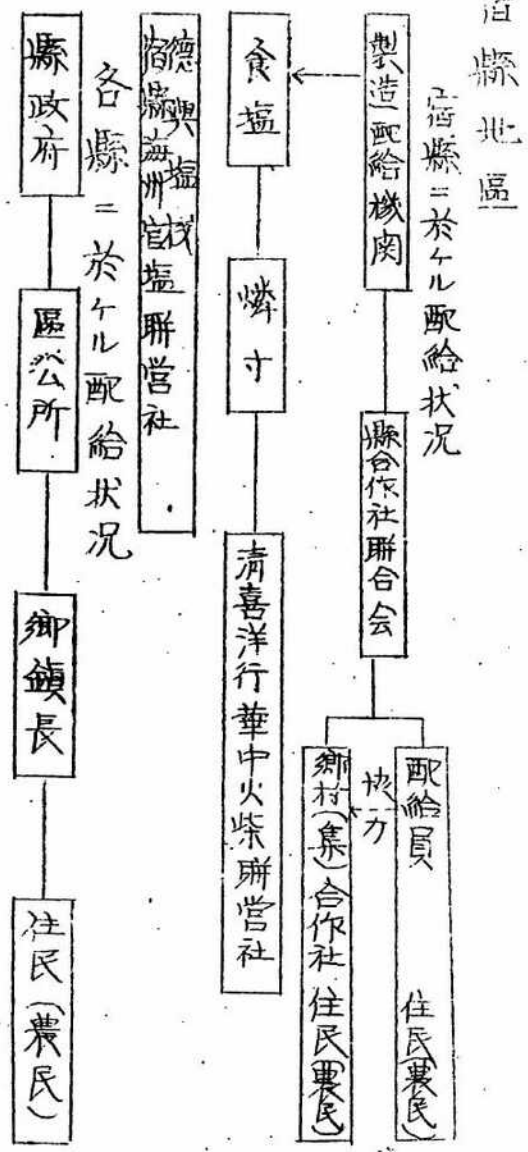 宿縣地區
宿縣ニ於ケル配給状况
製造配給機関
縣合作社聯合会
配給員 住民(農民)
協力
鄉村(集)合作社 住民(農民)
食塩
燐寸
清喜洋行華中火柴聯営社
德興塩桟
宿縣海州官塩聯営社
各縣ニ於ケル配給状况
縣政府
區公所
鄉鎮長
住民(農民)